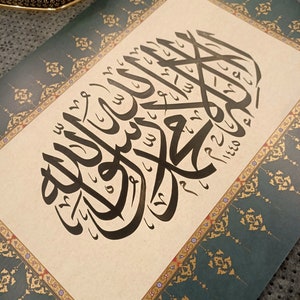 لا إله إلا الله محمد رسول الله
١٤٤٥